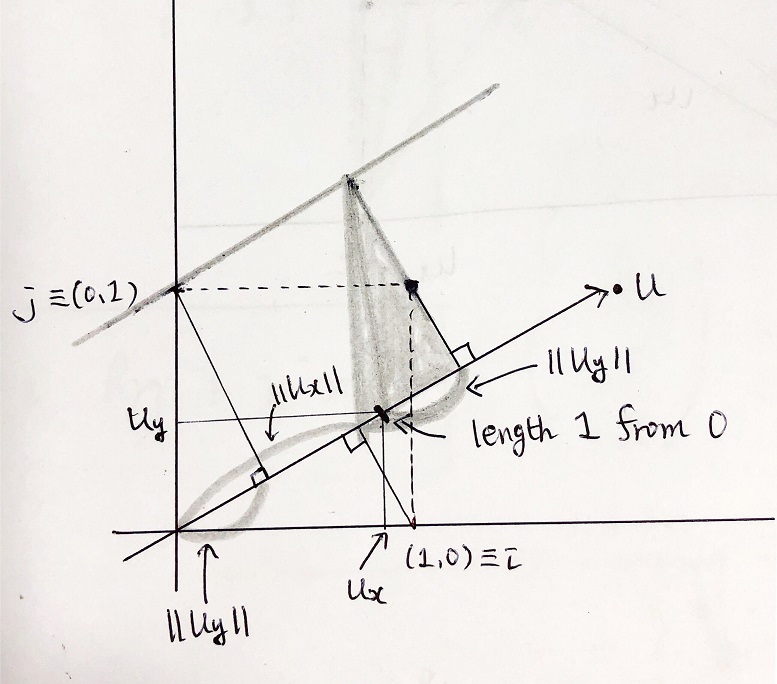 j ≡(0,1)
U
||Uy||
||Ux||
Uy
length 1 from 0
(1,0) ≡ i
Ux
||Uy||